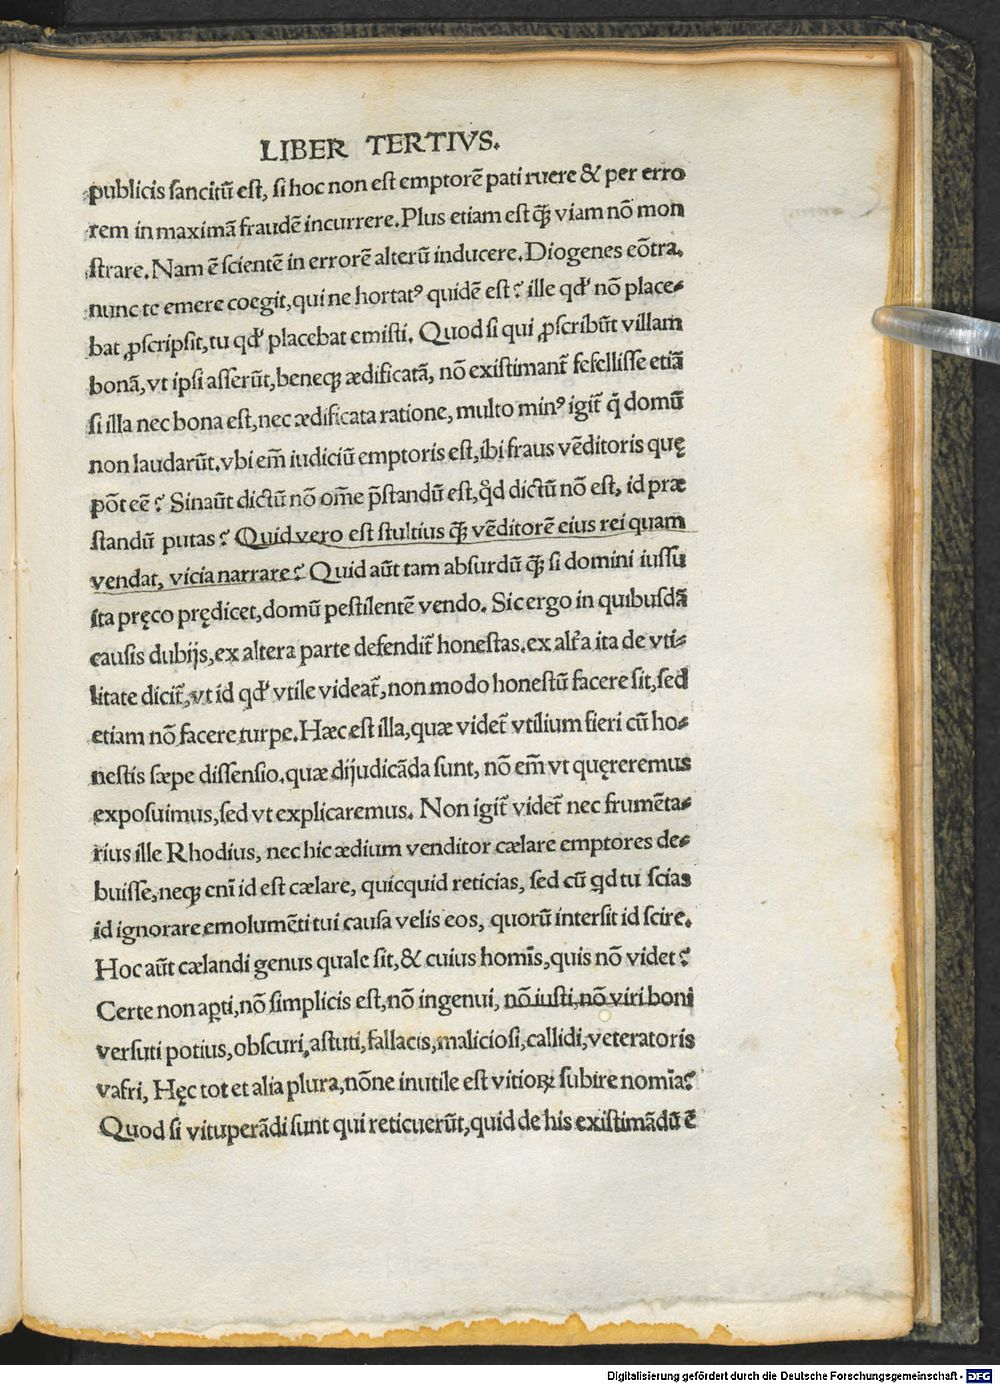 LIBER TERTIVS.
publicis sancitū est, si hoc non est emptorē pati ruere & per erro
rem in maximā fraudē incurrere. Plus etiam est qꝫ viam nō mon
strare. Nam ē scientē in errorē alterū inducere. Diogenes cōtra.
nunc te emere coegit, qui ne hortatꝰ quidē est? ille qđ nō place-
bat ꝓscripsit, tu qđ placebat emisti. Quod si qui ꝓscribūt villam
bonā, vt ipsi asserūt, beneqꝫ ædificatā, nō existimant̄ fefellisse etiā
si illa nec bona est, nec ædificata ratione, multo minꝰ igit̄ q̄ domū
non laudarūt. vbi em̄ iudiciū emptoris est, ibi fraus vēditoris quę
pōt eē? Sinaūt dictū nō om̄e p̄standū est, qd̓ dictū nō est, id præ
standū putas? Quid vero est stultius qꝫ vēditorē eius rei quam
vendat, vicia narrare? Quid aūt tam absurdū qꝫ si domini iussu
ita pręco prędicet, domū pestilentē vendo. Sic ergo in quibusdā
causis dubijs, ex altera parte defendit̄ honestas. ex alt̄a ita de vti-
litate dicit̄, vt id qđ vtile videat̄, non modo honestū facere sit, sed
etiam nō facere turpe. Hæc est illa, quæ videt̄ vtilium fieri cū ho-
nestis sæpe dissensio. quæ dijudicāda sunt, nō em̄ vt quęreremus
exposuimus, sed vt explicaremus. Non igit̄ videt̄ nec frumēta-
rius ille Rhodius, nec hic ædium venditor cælare emptores de-
buisse, neqꝫ eni̅ id est cælare, quicquid reticias, sed cū qd tu scias
id ignorare emolumēti tui causa velis eos, quorū intersit id scire.
Hoc aūt cælandi genus quale sit, & cuius homi̅s, quis nō videt?
Certe non aꝑti, nō simplicis est, nō ingenui, nō iusti, nō viri boni
versuti potius, obscuri, astuti, fallacis, maliciosi, callidi, veteratoris
vafri, Hęc tot et alia plura, nōne inutile est vitioꝝ subire nomi̅a?
Quod si vituperādi sunt qui reticuerūt, quid de his existimādū ē
Digitalisierung gefördert durch die Deutsche Forschungsgemeinschaft - DFG